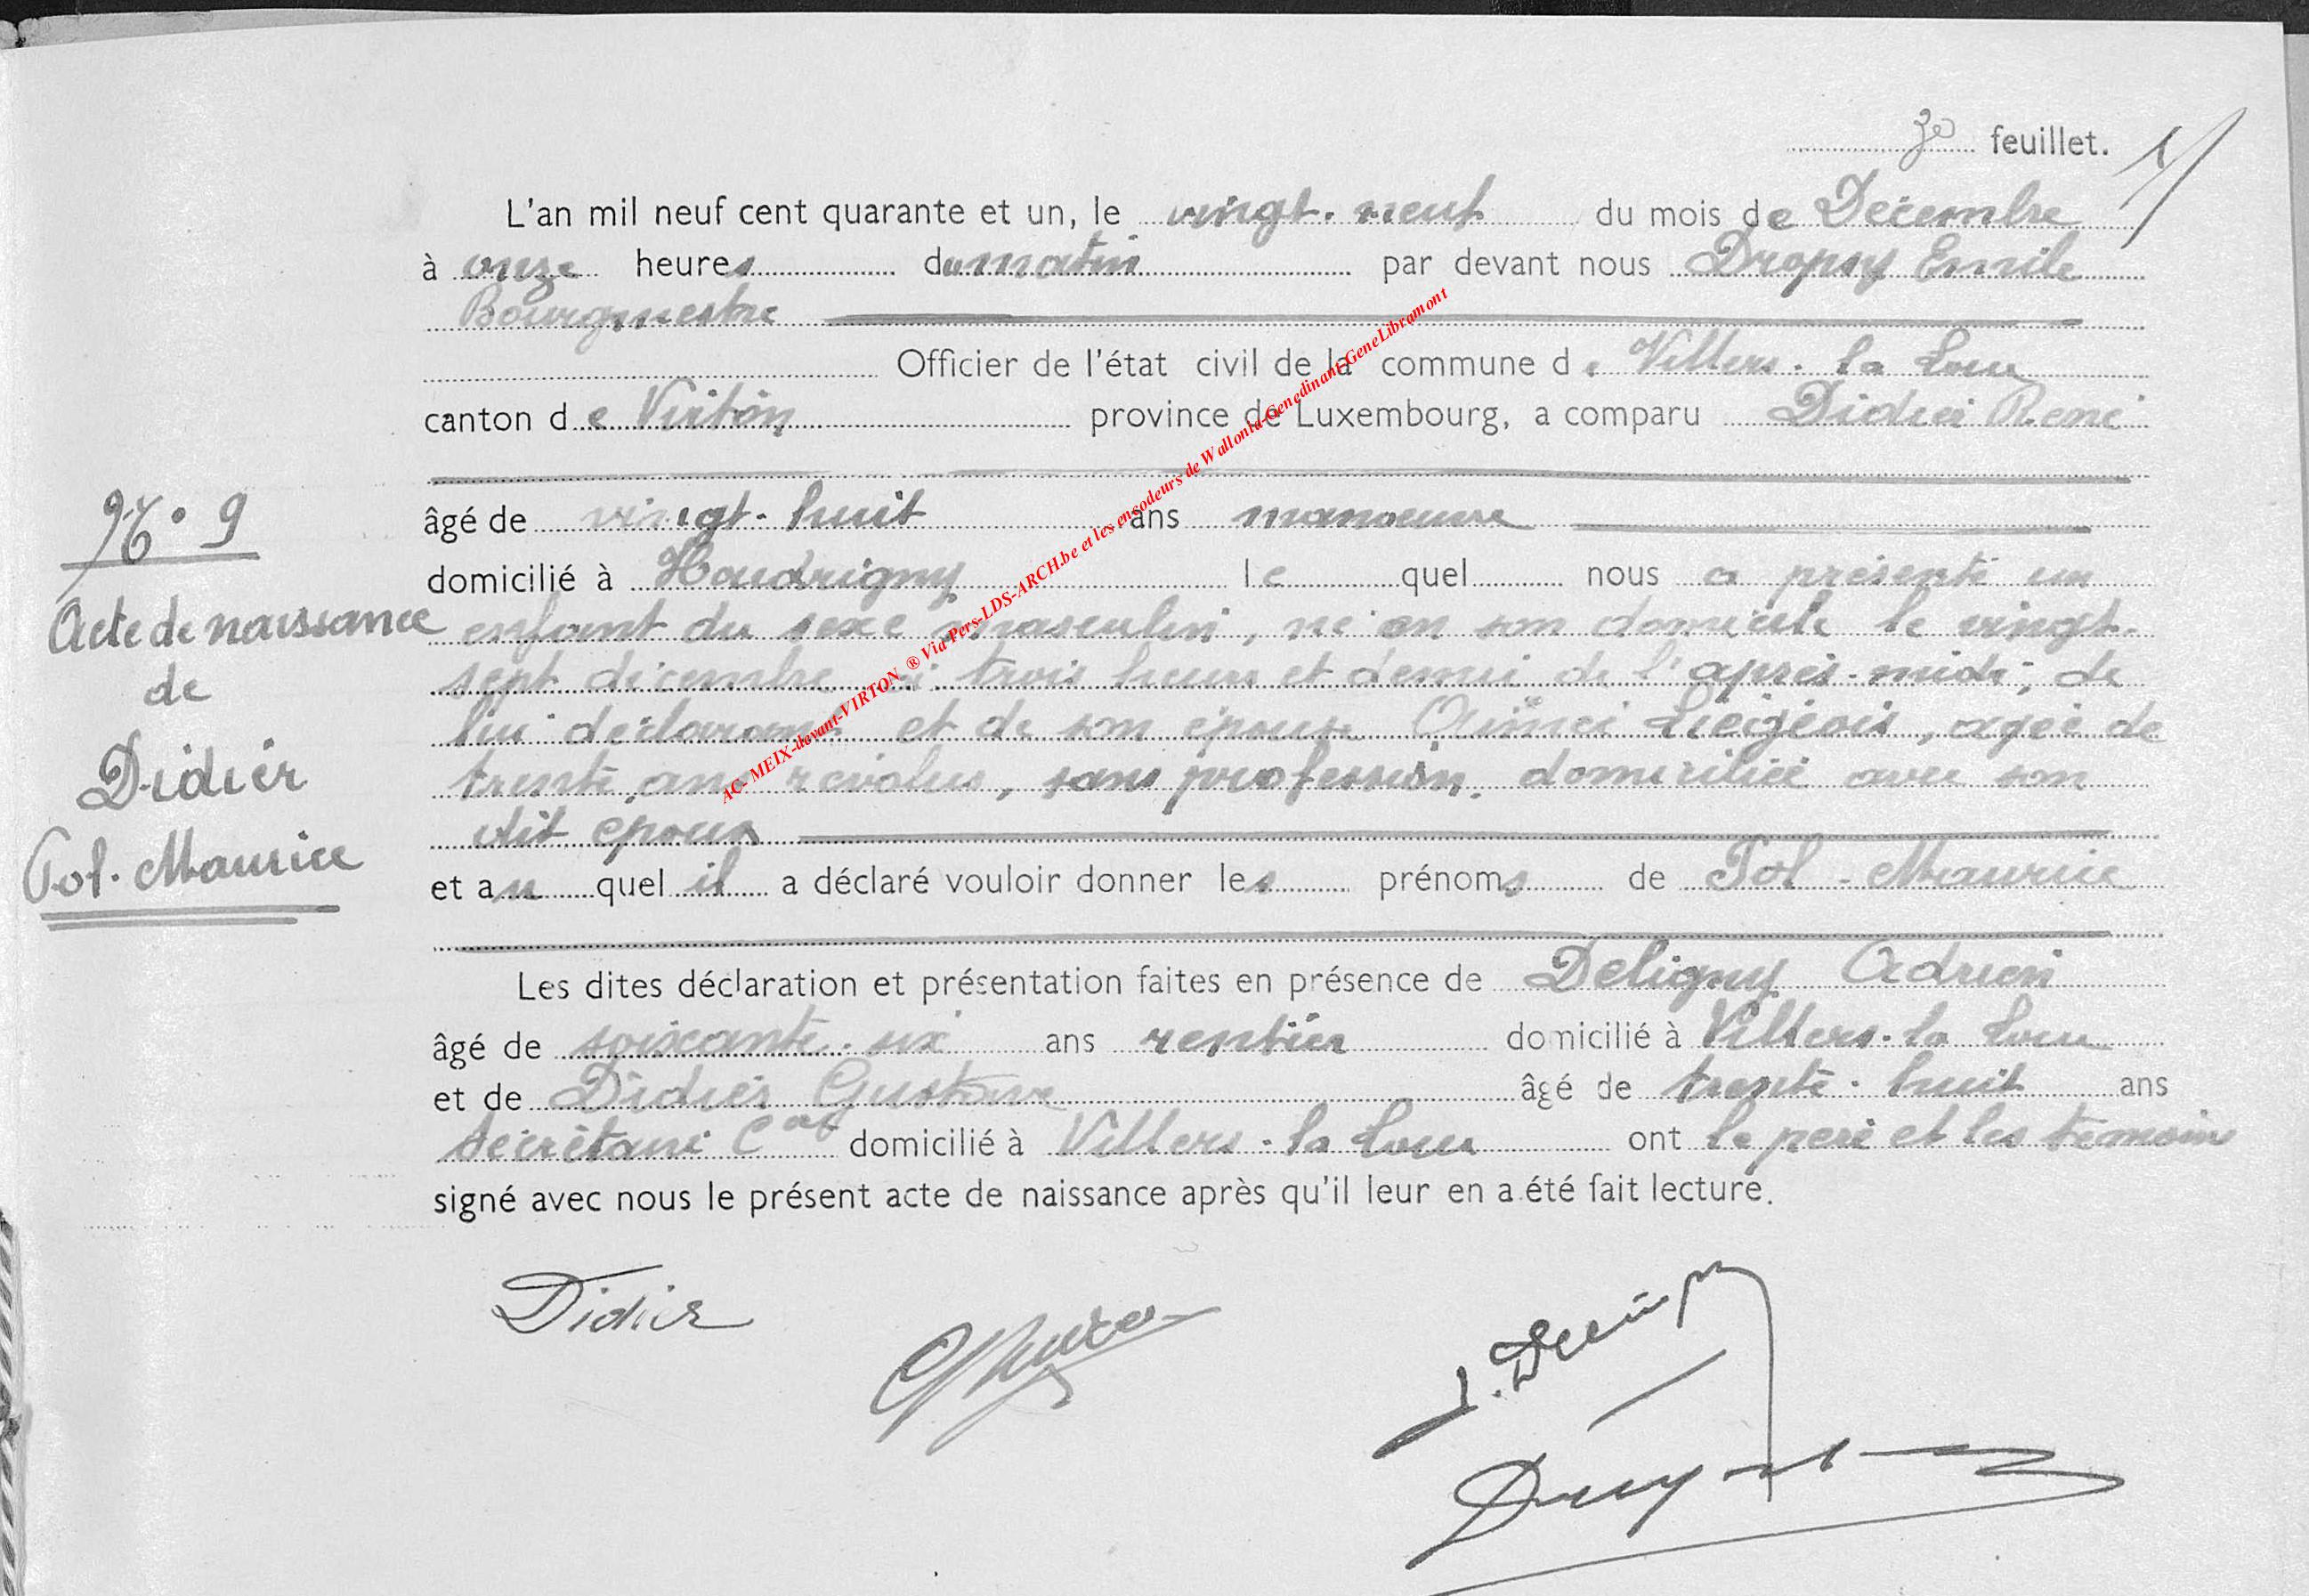 3e feuillet.
L'an mil neuf cent quarante et un, le vingt-neuf du mois de Décembre
à onze heures du matin par devant nous Dropsy Emile
Bourgmestre
Officier de l'état civil de la commune de Villers-la Loue
canton de Virton province de Luxembourg, a comparu Didier René
âgé de vingt-huit ans manoeuvre
domicilié à Houdrigny le quel nous a présenté un
enfant du sexe masculin, né en son domicile le vingt-
sept décembre à trois heures et demie de l'après-midi, de
lui déclarant et de son épouse Aimée Liégeois, agée de
trente ans révolus, sans profession, domiciliée avec son
dit époux
et au quel il a déclaré vouloir donner les prénoms de Pol-Maurice
Les dites déclaration et présentation faites en présence de Deligny Adrien
âgé de soixante-six ans rentier domicilié à Villers-la Loue
et de Didier Gustave âgé de trente-huit ans
secrétaire Cal domicilié à Villers-la Loue ont le père et les témoins
signé avec nous le présent acte de naissance après qu'il leur en a été fait lecture.
N° 9
Acte de naissance
de
Didier
Pol-Maurice
Didier
AC- MEIX-devant-VIRTON ® Via Pers-LDS-ARCH.be et les encodeurs de Wallonia-Genedinant-GeneLibramont